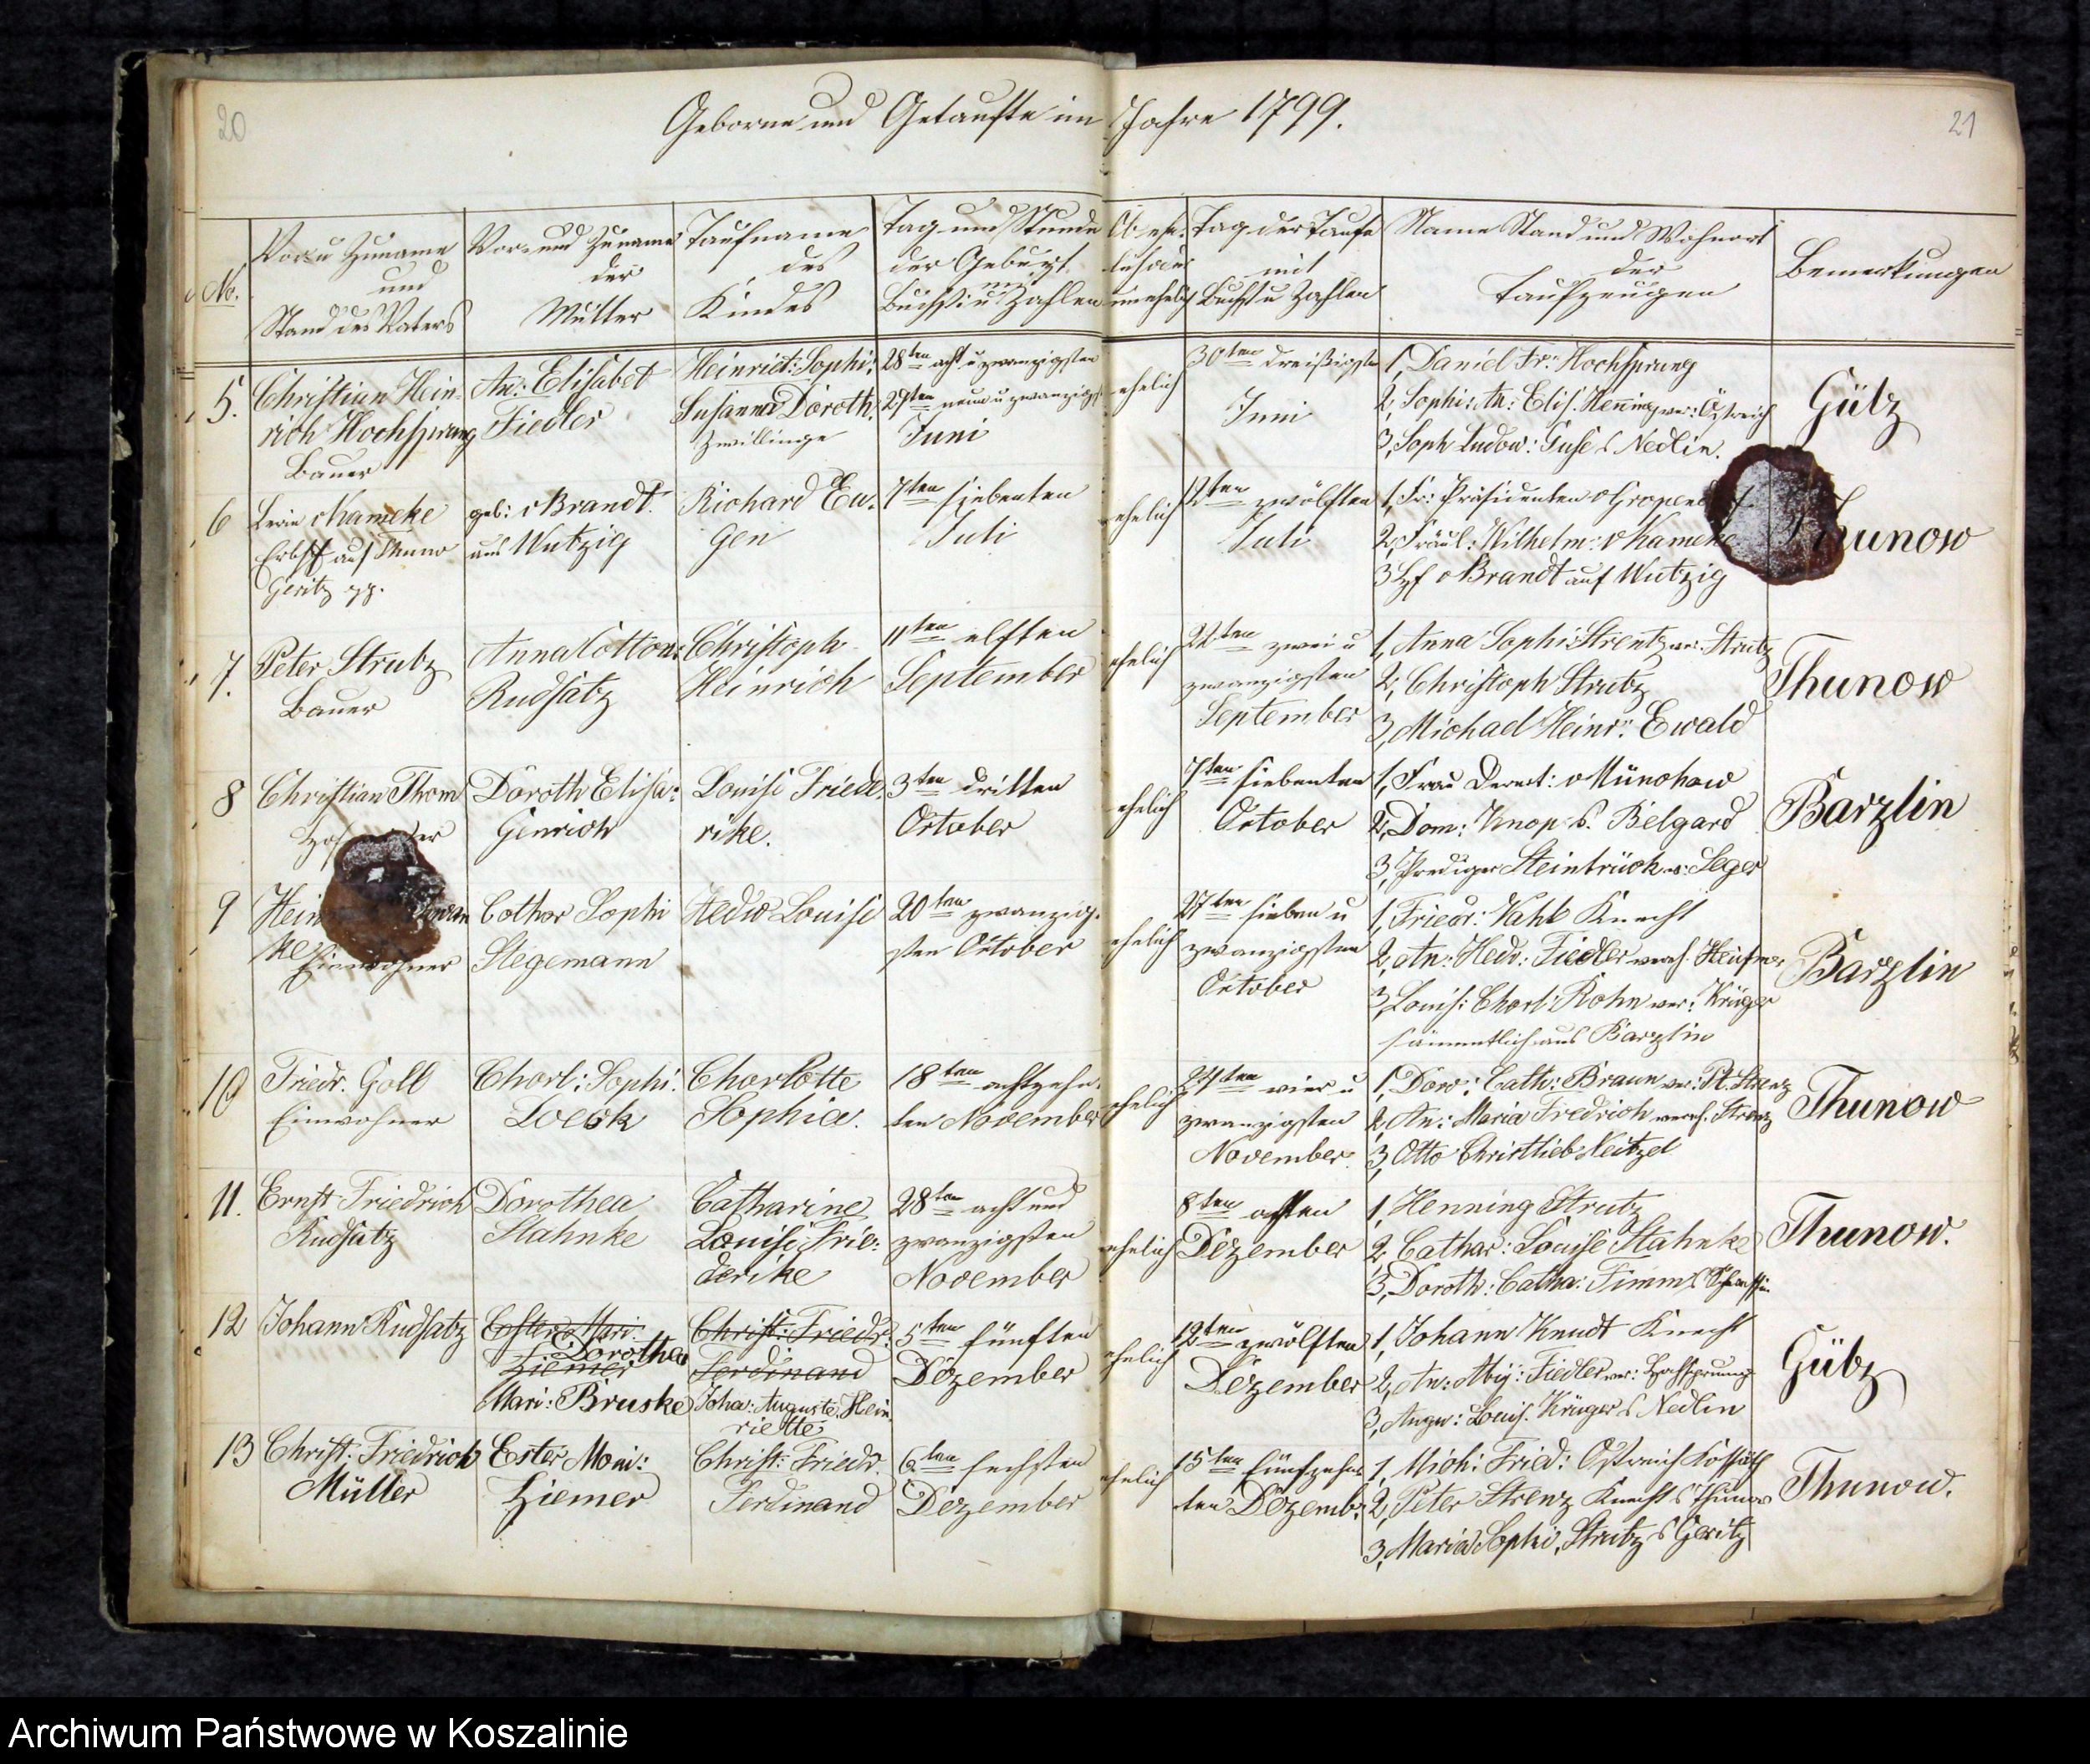 20
Geborne und Getaufte im Jahre 1799.
21
No.
Vor u Zuname
und
Stand des Vaters
Vor- und Zuname
der
Mutter
Taufname
des
Kindes
Tag und Stunde
der Geburt
mit
Buchst: u Zahlen
Ob ehe-
lich oder
unehelich
Tag der Taufe
mit
Buchst u Zahlen
Name Stand und Wohnort
der
Taufzeugen
Bemerkungen
5.
Christian Hein-
rich Hochsprung
Bauer
An: Elisabet
Fiedler
Heinriet: Sophi:
Susanna Doroth.
Zwillinge
28ten acht u zwanzigsten
29ten neun u zwanzigst
Juni
ehelich
30ten dreißigsten
Juni
1, Daniel Fr: Hochsprung
2, Sophi: An: Elis. Henning ver: Östreich
3, Soph Ludow: Guse Nedlin.
Gütz
6
Levin v Kameke
auf Thunow
Geritz
geb: v Brandt.
aus Wutzig
Richard Eu-
gen
7ten siebenten
Juli
ehelich
12ten zwölften
Juli
1, Fr: Präsidenten v
2, Fräul: Wilhelm: v Kameke
3 v Brandt auf Wutzig
Thunow
7.
Peter Strutz
Bauer
Anna
Rudsatz
Christoph
Heinrich
11ten elften
September
ehelich
22ten zwei u
zwanzigsten
September
1, Anna Sophi: Strentz ver. Strutz
2, Christoph Strutz
3, Michael Heinr: Ewald
Thunow
8
Christian Thom
Doroth Elisa:
Genrich
Louise Friede-
rike.
3ten dritten
October
ehelich
7ten siebenten
October
1, Frau v Münchow
2, Dom: Knop Belgard
3, Prediger Steinbrück Seger
Barzlin
9
Hein
ke
Einwohner
Cathar Sophi
Stegemann
Hedw Louise
20ten zwanzig-
sten October
ehelich
27ten sieben u
zwanzigsten
October
1, Friedr: Vahl Knecht
2, An: Hedw: Fiedler verh.
3, Louis: Charl: Rohn ver: Krüger
sämmtlich aus Barzlin
Barzlin
10
Friedr. Goll
Einwohner
Charl: Sophi:
Loeck
Charlotte
Sophia.
18ten achtzehn-
ten November
ehelich
24ten vier u
zwanzigsten
November.
1, Dor: Cath: Braun ver: Pt. Strenz
2, An: Maria Fredrich verh. Strenz
3, Otto Christlieb Neitzel
Thunow
11.
Ernst Friedrich
Rudsatz
Dorothea
Stahnke
Catharine
Louise Frie-
derike
28ten acht und
zwanzigsten
November
ehelich
8ten achten
Dezember
1, Henning Strutz
2, Cathar: Louise Stahnke
3, Doroth: Catha: Timm
Thunow.
12
Johann Rudsatz
Ester Mari:
Dorothea
Ziemer
Mari: Bruske
Christ: Friedr.
Ferdinand
Joha: Auguste Hein-
riette
5ten fünften
Dezember
ehelich
12ten zwölften
Dezember
1, Johann Knudt Knecht
2, An: Fiedler ver: Hochsprung
3, Augu: Louis. Krüger Nedlin
Gütz
13
Christ: Friedrich
Müller
Ester Mari:
Ziemer
Christ: Friedr.
Ferdinand
6ten sechsten
Dezember
ehelich
15ten fünfzehn-
ten Dezemb:
1, Mich: Fried: Ostreich Kossäth
2, Peter Strenz Knecht Thunow
3, Maria Sophi, Strutz Geritz
Thunow.
Archiwum Państwowe w Koszalinie